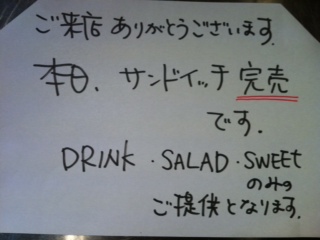 ご来店ありがとうございます.
本日、サンドイッチ 完売
です.
DRINK・SALAD・SWEEt
のみの
ご提供となります.